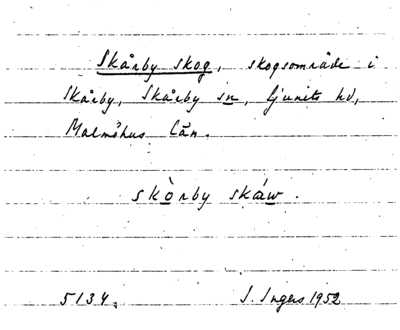 Skårby skog, skogsområde i
Skårby, Skårby sn, Ljunits hd,
Malmöhus län.
skòrby skáw.
5134. I. Ingers 1952